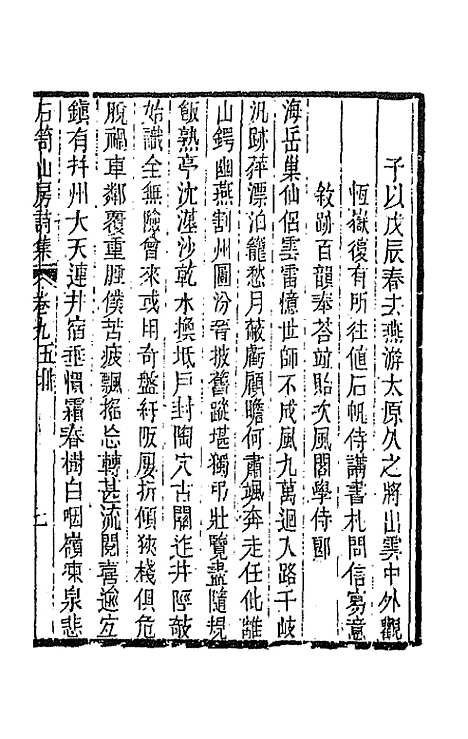 予以戊辰春去燕游太原久之將出雲中外觀
恆嶽復有所往值石帆侍講書札問信寫意
敘跡百韻奉荅竝貽次風閣學侍郎
海岳巢仙侶雲雷憶世師不成風九萬迴入路千歧
汎跡萍漂泊籠愁月蔽虧顧瞻何肅颯奔走任仳離
山鍔幽燕割州圖汾晉披舊蹤堪獨弔壯覽盡隨規
飯熟亭沈滹沙乾水換坻戶封陶穴古關迮井陘敧
始識全無險曾來或用奇盤紆阪屢折傾狹棧俱危
脫禍車鄰覆重腄僕苦疲飄搖忩轉甚流閱喜逾宜
鎮有幷州大天連井宿垂慣霜春樹白咽嶺凍泉悲
石笥山房詩集 卷九五排 上